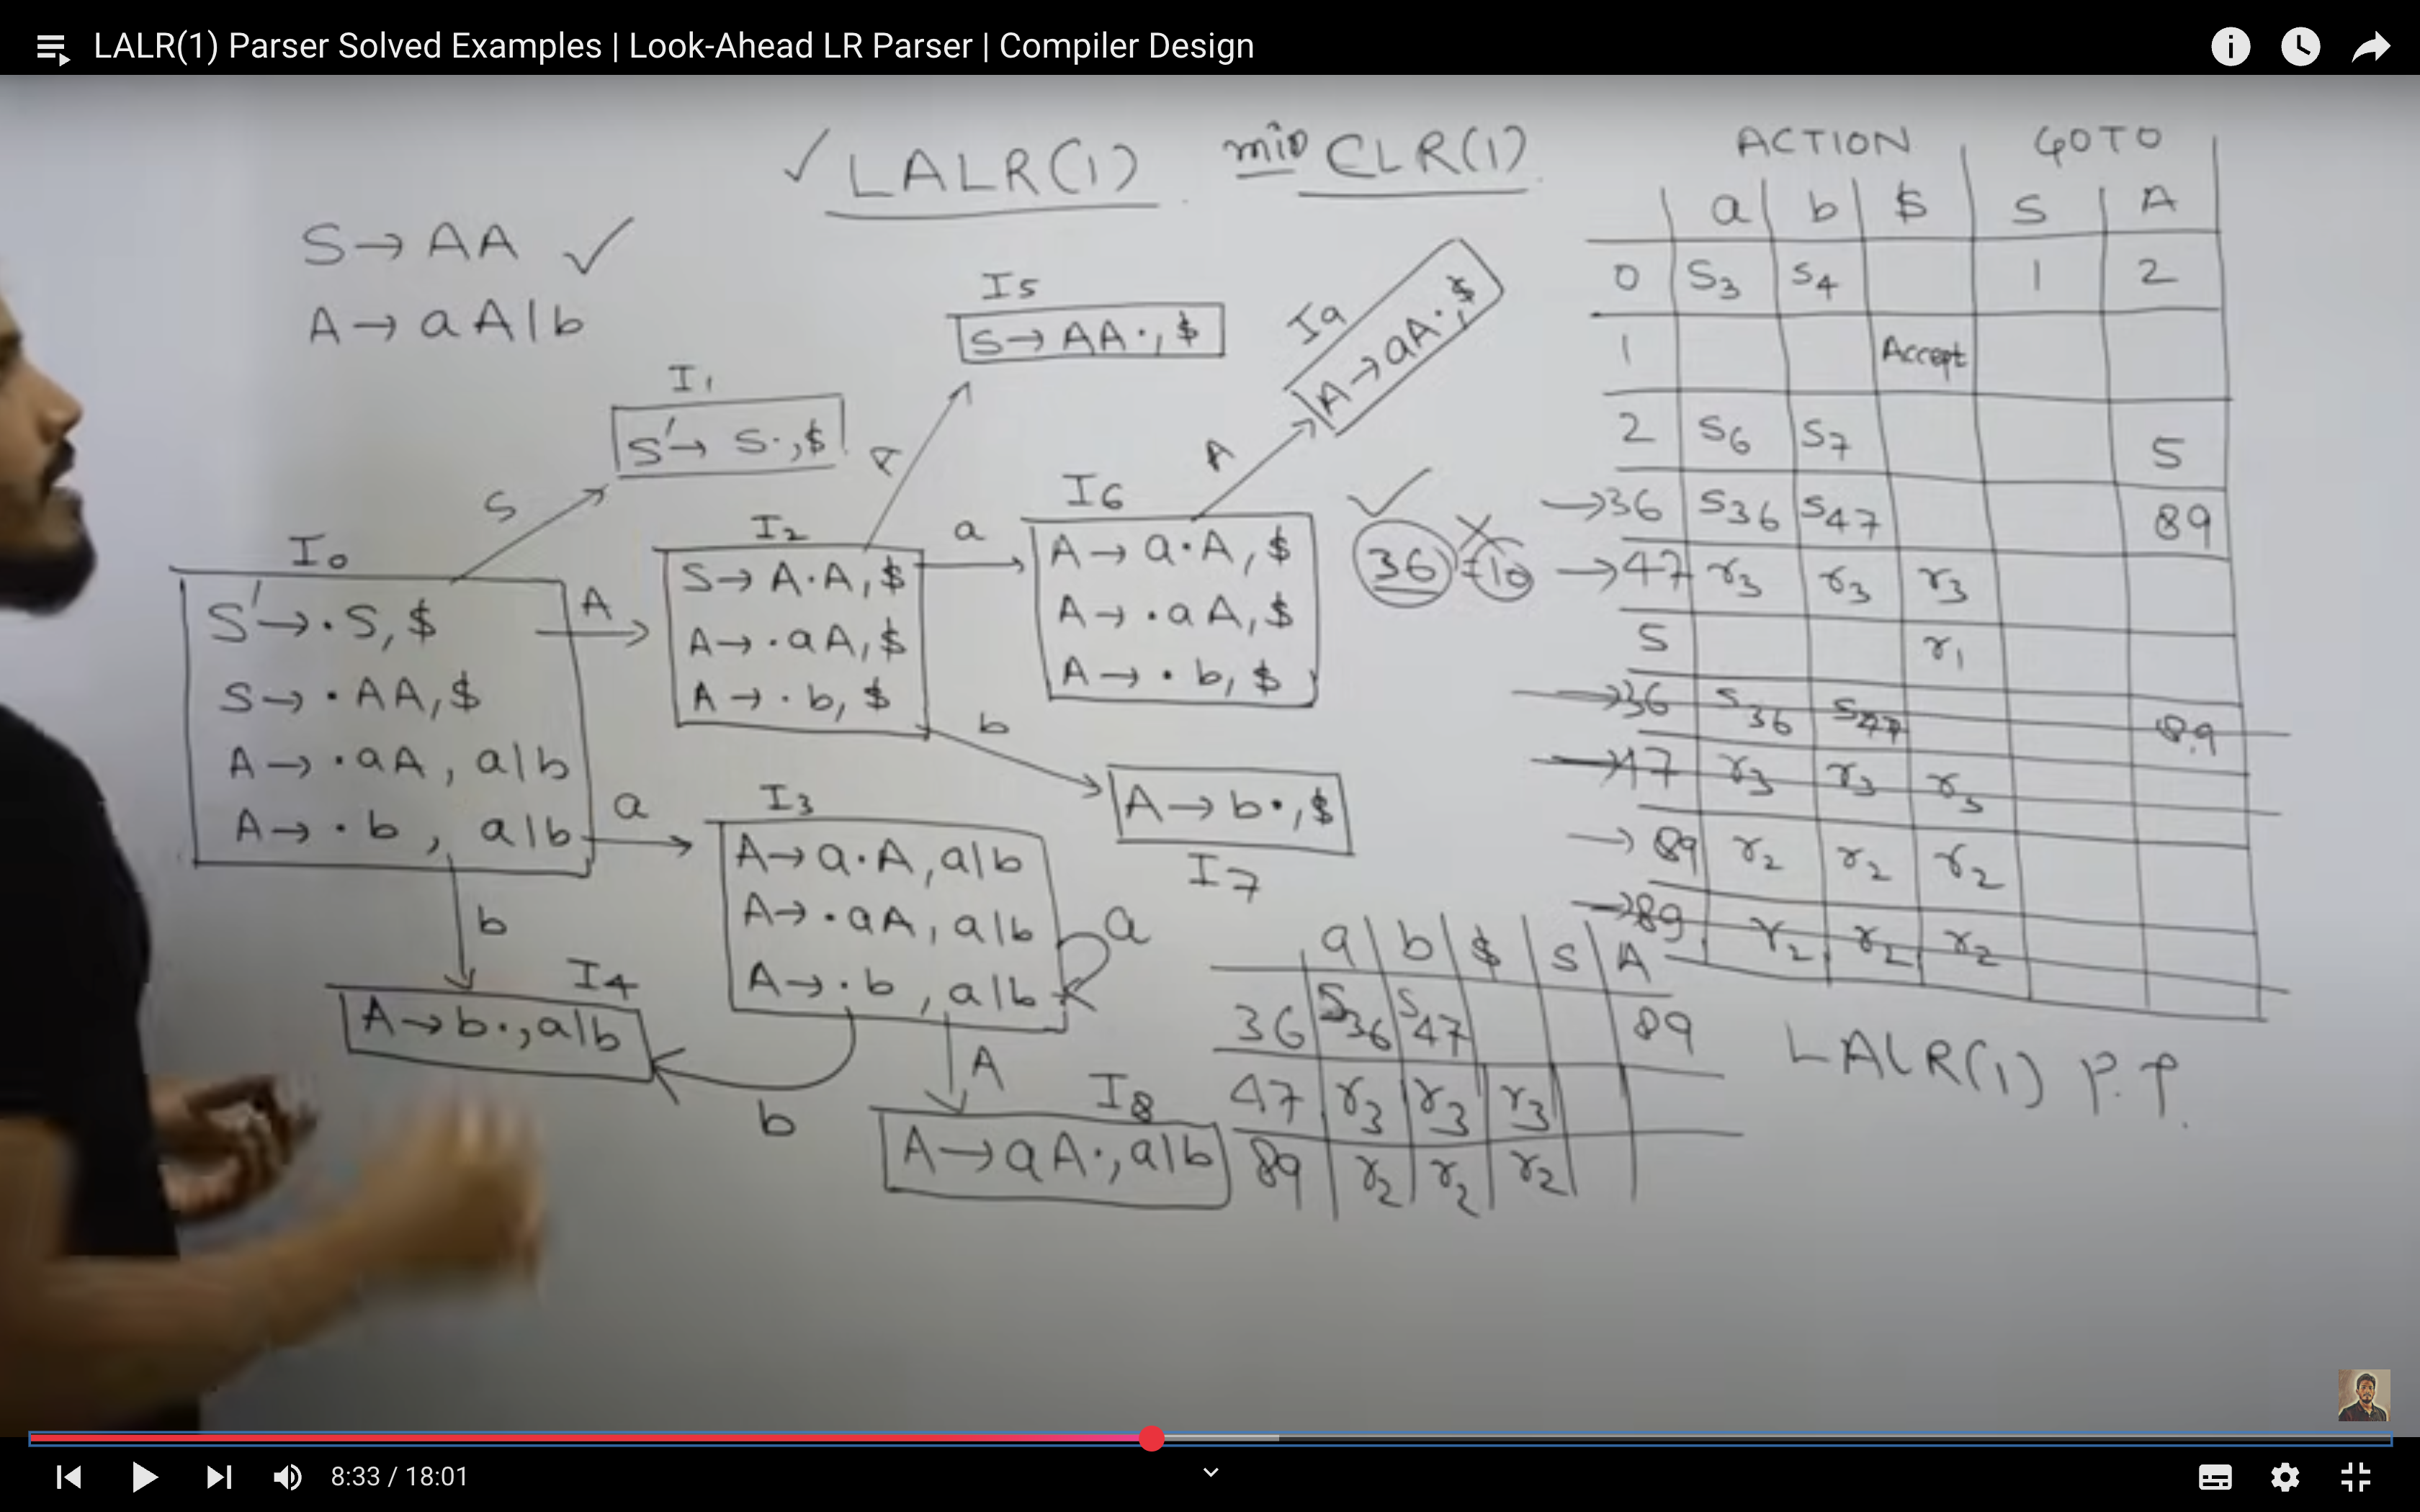 LALR(1) Parser Solved Examples | Look-Ahead LR Parser | Compiler Design
LALR(1) min CLR(1)
S → AA
A → aA|b
I0
S' → ·S, $
S → ·AA, $
A → ·aA, a|b
A → ·b, a|b
S
I1
S' → S·, $
A
I2
S → A·A, $
A → ·aA, $
A → ·b, $
A
I5
S → AA·, $
a
I6
A → a·A, $
A → ·aA, $
A → ·b, $
A
I9
A → aA·, $
36
b
A → b·, $
I7
a
I3
A → a·A, a|b
A → ·aA, a|b
A → ·b, a|b
a
b
I4
A → b·, a|b
b
A
I8
A → aA·, a|b
ACTION GOTO
a b $ S A
0 S3 S4 1 2
1 Accept
2 S6 S7 5
→36 S36 S47 89
→47 r3 r3 r3
5 r1
→36 S36 S47 89
→47 r3 r3 r3
→89 r2 r2 r2
→89 r2 r2 r2
a b $ S A
36 S36 S47 89
47 r3 r3 r3
89 r2 r2 r2
LALR(1) P.T.
8:33 / 18:01